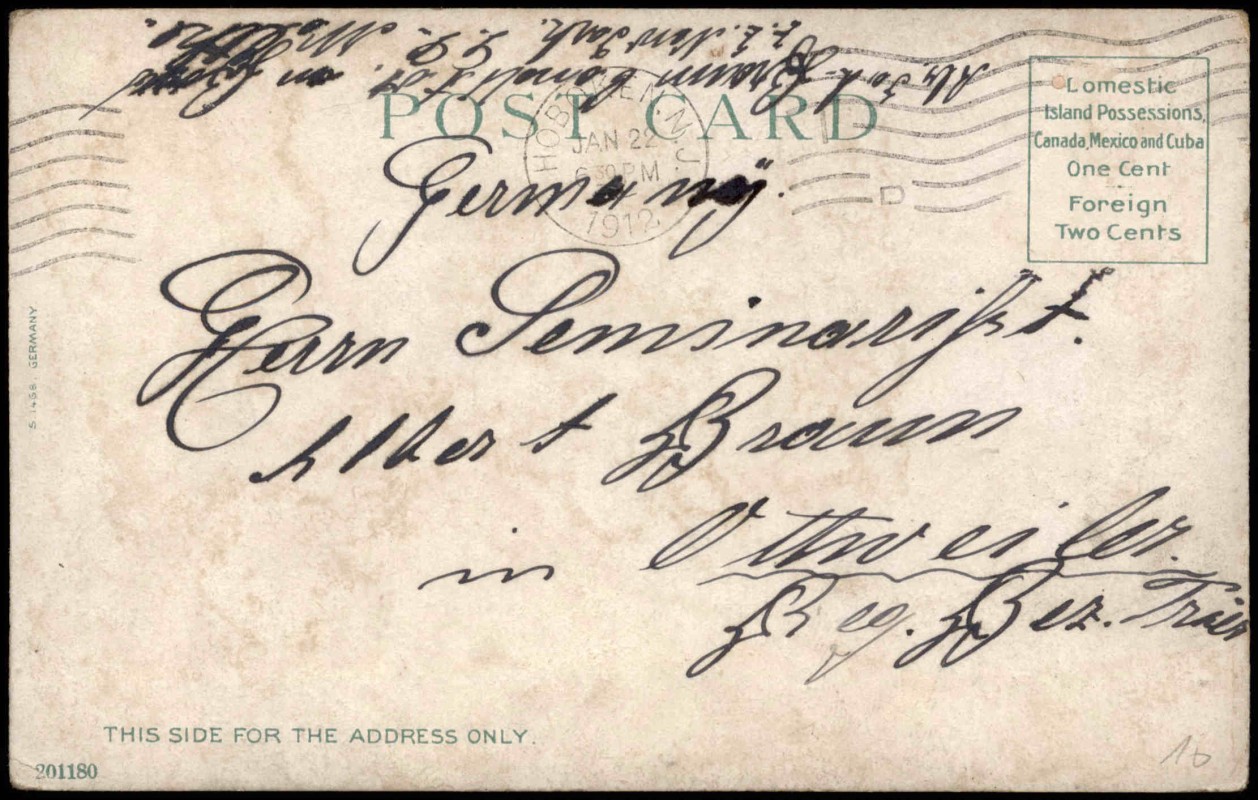 POST CARD
HOBOKEN, N.J.
JAN 22
6 30 PM
1912
D
Domestic
Island Possessions,
Canada, Mexico and Cuba
One Cent
Foreign
Two Cents
Germany.
Herrn Seminarist.
Albert Braun
in Ottweiler.
Reg. Bez. Trier
S. 1458. GERMANY
THIS SIDE FOR THE ADDRESS ONLY.
201180
16
Braun
z. Z. New York.